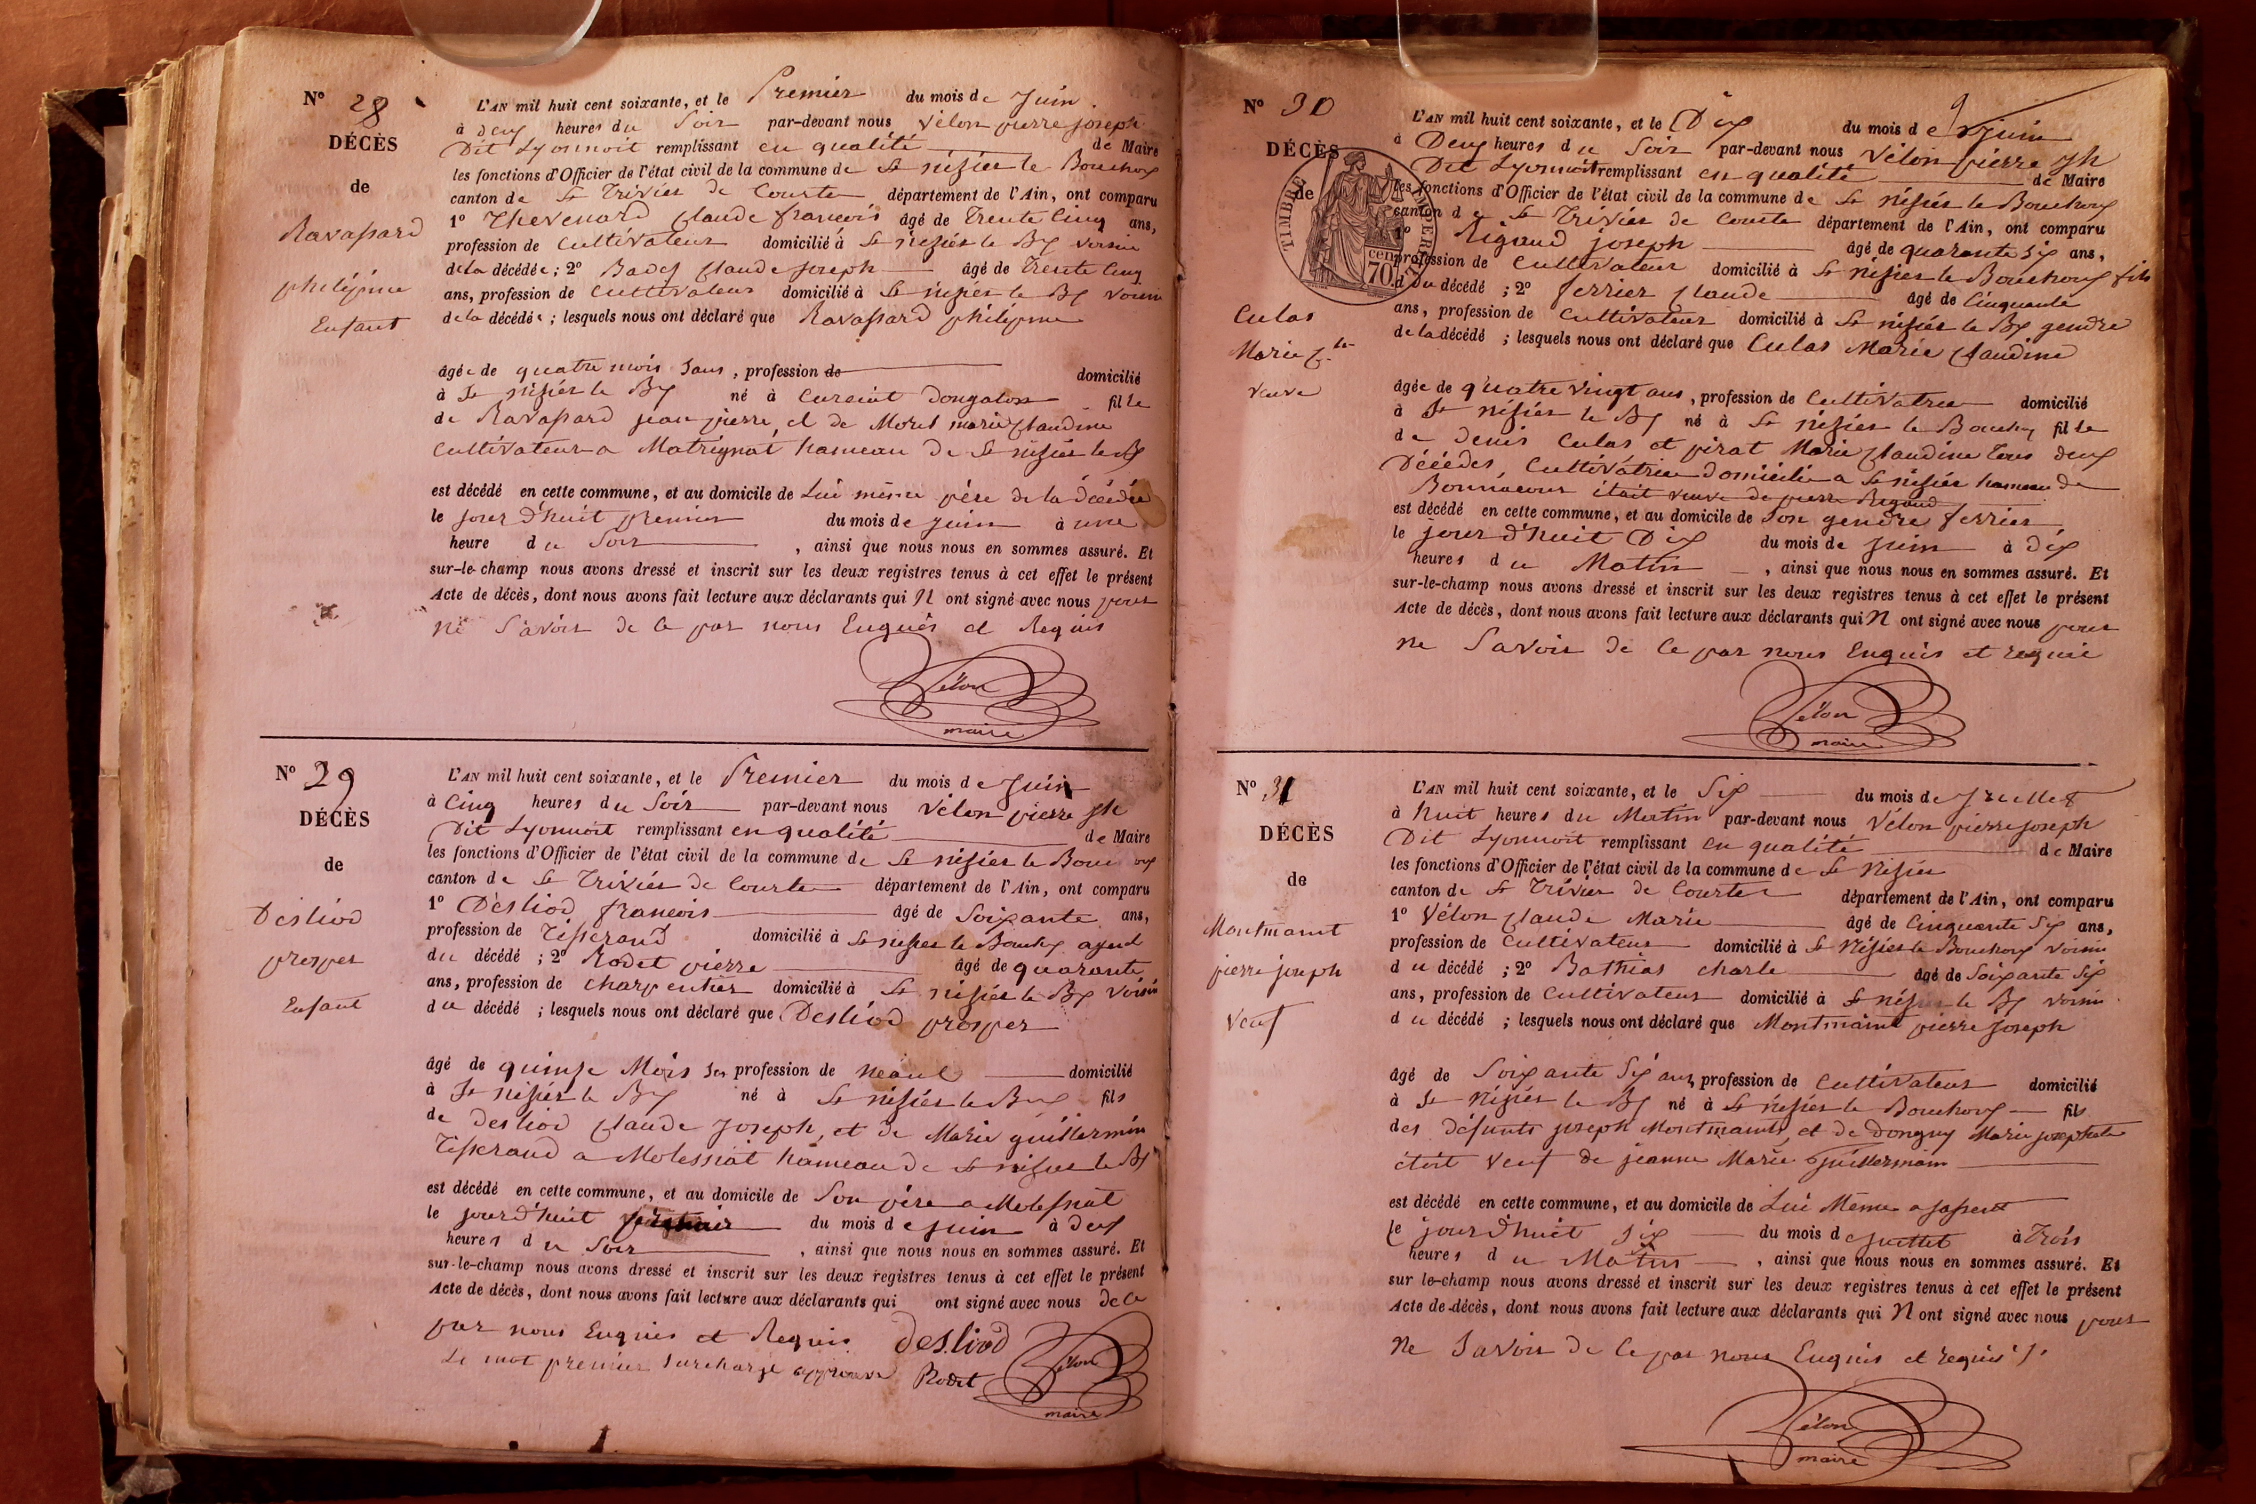 N° 28
DÉCÈS
de
Ravassard
philipine
Enfant
L'AN mil huit cent soixante, et le Premier du mois de Juin.
à deux heures du Soir par-devant nous Vélon pierre joseph
Dit Lyonnoit remplissant en qualité de Maire
les fonctions d'Officier de l'état civil de la commune de St nisier le Bouchoux
canton de St Trivier de Courte département de l'Ain, ont comparu
1° Thevenard Claude francois âgé de Trente Cinq ans,
profession de Cultivateur domicilié à St nisier le Bx voisin
de la décédée ; 2° Badez Claude joseph âgé de Trente Cinq
ans, profession de Cultivateur domicilié à St nisier le Bx voisin
de la décédée ; lesquels nous ont déclaré que Ravassard philipine
âgée de quatre mois sans, profession de domicilié
à St nisier le Bx né à Curciat Dongalon fille
de Ravassard jean pierre, et de Morel marie Claudine
Cultivateur a Matrignat hameau de St nisier le Bx
est décédé en cette commune, et au domicile de Lui même père de la décédée
le jour d'huit premier du mois de juin à une
heure du Soir , ainsi que nous nous en sommes assuré. Et
sur-le-champ nous avons dressé et inscrit sur les deux registres tenus à cet effet le présent
Acte de décès, dont nous avons fait lecture aux déclarants qui N ont signé avec nous pour
ne Savoir de Ce par nous Enquis et Requis
Vélon
maire
N° 29
DÉCÈS
de
Desliod
prosper
Enfant
L'AN mil huit cent soixante, et le Premier du mois de Juin
à Cinq heures du Soir par-devant nous Vélon pierre jh
Dit Lyonnoit remplissant en qualité de Maire
les fonctions d'Officier de l'état civil de la commune de St nisier le Bouchoux
canton de St Trivier de Courte département de l'Ain, ont comparu
1° Desliod francois âgé de Soixante ans,
profession de Tisserand domicilié à St nisier le Bouchx ayeul
du décédé ; 2° Rodet pierre âgé de quarante
ans, profession de Charpentier domicilié à St nisier le Bx Voisin
du décédé ; lesquels nous ont déclaré que Desliod prosper
âgé de quinze Mois sans profession de domicilié
à St nisier le Bx né à St nisier le Bx fils
de desliod Claude Joseph, et de Marie guillermin
Tisserand a Molessiat hameau de St nisier le Bx
est décédé en cette commune, et au domicile de Son père a Molessiat
le jour d'huit premier du mois de juin à deux
heures du Soir , ainsi que nous nous en sommes assuré. Et
sur-le-champ nous avons dressé et inscrit sur les deux registres tenus à cet effet le présent
Acte de décès, dont nous avons fait lecture aux déclarants qui ont signé avec nous de Ce
par nous Enquis et Requis. desliod
Le mot premier surcharge approuvé Rodet Vélon
maire
N° 30
DÉCÈS
de
TIMBRE IMPÉRIAL
70 cen
Culas
Marie Cl.
veuve
9
L'AN mil huit cent soixante, et le Dix du mois de juin
à Deux heures du Soir par-devant nous Vélon pierre jh
Dit Lyonnoit remplissant en qualité de Maire
les fonctions d'Officier de l'état civil de la commune de St nisier le Bouchoux
canton de St Trivier de Courte département de l'Ain, ont comparu
1° Rigaud joseph âgé de quarante six ans,
profession de Cultivateur domicilié à St nisier le Bouchoux fils
d du décédé ; 2° ferrier Claude âgé de Cinquante
ans, profession de Cultivateur domicilié à St nisier le Bx gendre
de la décédé ; lesquels nous ont déclaré que Culas Marie Claudine
âgée de quatre vingt ans, profession de Cultivatrice domicilié
à St nisier le Bx né à St nisier le Bouchx fille
de denis Culas et pirat Marie Claudine Tous deux
Décédés, Cultivatrice domicilié a St nisier hameau de
était veuve de pierre Rigaud
est décédé en cette commune, et au domicile de Son gendre ferrier
le jour d'huit Dix du mois de Juin à dix
heures du Matin , ainsi que nous nous en sommes assuré. Et
sur-le-champ nous avons dressé et inscrit sur les deux registres tenus à cet effet le présent
Acte de décès, dont nous avons fait lecture aux déclarants qui N ont signé avec nous pour
ne Savoir de Ce par nous Enquis et requis
Vélon
maire
N° 31
DÉCÈS
de
Montmaint
pierre joseph
Veuf
L'AN mil huit cent soixante, et le Six du mois de Juillet
à huit heures du Matin par-devant nous Vélon pierre joseph
Dit Lyonnoit remplissant en qualité de Maire
les fonctions d'Officier de l'état civil de la commune de St Nisier
canton de St Trivier de Courte département de l'Ain, ont comparu
1° Vélon Claude Marie âgé de Cinquante Six ans,
profession de Cultivateur domicilié à St Nisier le Bouchoux voisin
du décédé ; 2° Bathias Charle âgé de Soixante Six
ans, profession de Cultivateur domicilié à St nisier le Bx voisin
du décédé ; lesquels nous ont déclaré que Montmaint pierre Joseph
âgé de Soixante Six ans, profession de Cultivateur domicilié
à St Nisier le Bx né à St nisier le Bouchoux fils
des défunts joseph Montmaint, et de Donguy Marie josephte
étoit Veuf de jeanne Marie Guillermain
est décédé en cette commune, et au domicile de Lui Même a
le jour d'huit six du mois de juillet à Trois
heures du Matin , ainsi que nous nous en sommes assuré. Et
sur le-champ nous avons dressé et inscrit sur les deux registres tenus à cet effet le présent
Acte de décès, dont nous avons fait lecture aux déclarants qui N ont signé avec nous pour
ne Savoir de Ce par nous Enquis et requis
Vélon
maire